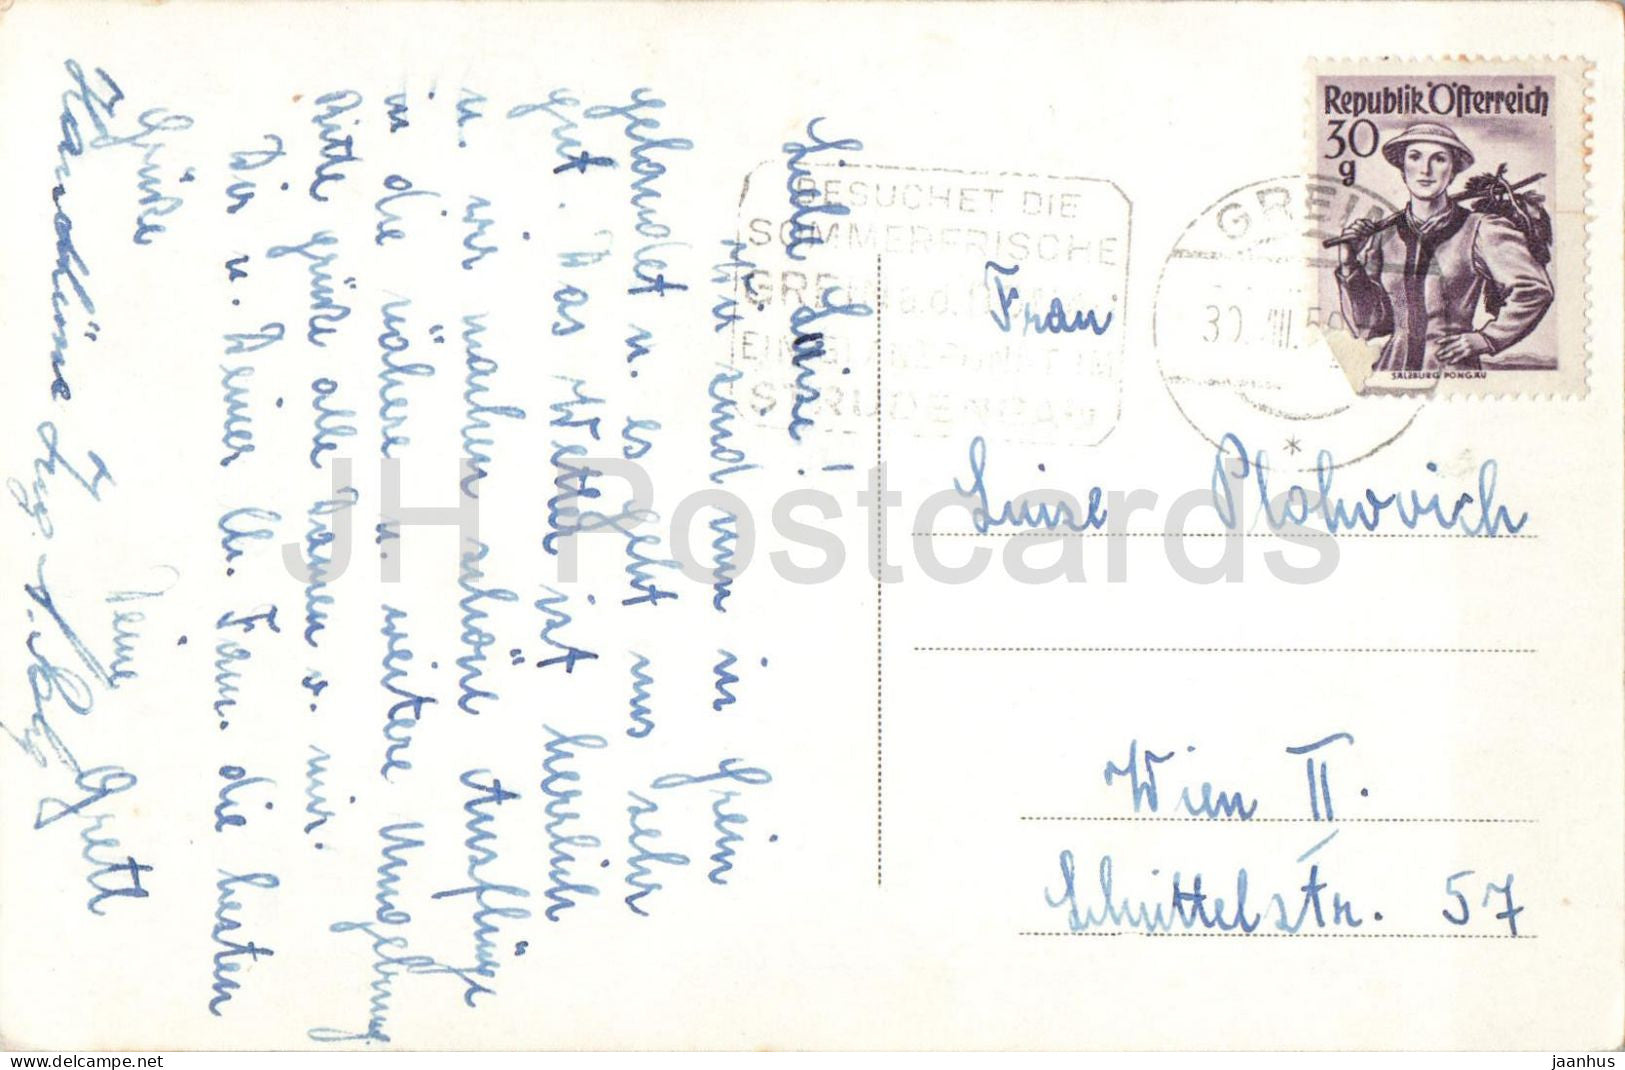 Liebe Luise!
Wir sind nun in Grein
gelandet u. es geht uns sehr
gut. Das Wetter ist herrlich
u. wir machen schöne Ausflüge
in die nähere u. weitere Umgebung
Bitte grüße alle Damen v. mir.
Dir u. Deiner lb. Fam. die besten
Grüße
Deine Gretl
Handküsse Ing.
BESUCHET DIE
SOMMERFRISCHE
GREIN a.d. DONAU
EIN GLANZPUNKT IM
STRUDENGAU
GREIN
30. VIII.
Republik Österreich
30
g
SALZBURG PONGAU
Frau
Luise Plohovich
Wien II.
Schüttelstr. 57
JH Postcards
www.delcampe.net
jaanhus